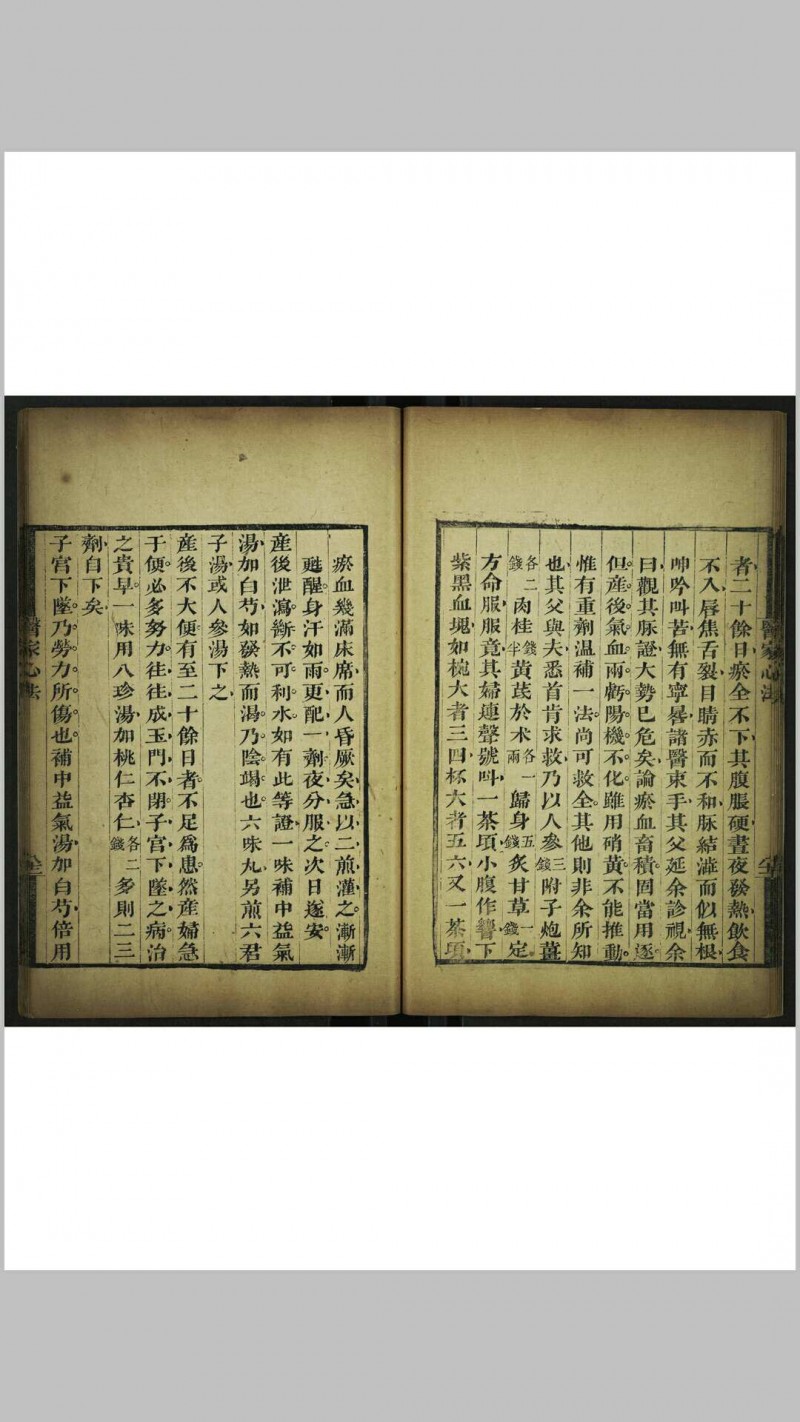 者二十餘日瘀全不下其腹脹硬晝夜發熱飲食
不入唇焦舌裂目睛赤而不和脉結澁而似無根
呻吟叫苦無有寧晷諸醫束手其父延余診視余
曰觀其脉證大勢巳危矣論瘀血畜積固當用逐
但產後氣血兩虧陽機不化雖用硝黃不能推動
惟有重劑温補一法尚可救全其他則非余所知
也其父與夫悉首肯求救乃以人參三錢附子炮薑
各二錢肉桂半錢黃芪於术各一兩歸身五錢炙甘草一錢定
方命服服竟其婦連聲號呌一茶頃小腹作響下
紫黑血塊如椀大者三四杯大者五六又一茶頃
瘀血幾滿床席而人昏厥矣急以二煎灌之漸漸
甦醒身汗如雨更配一劑夜分服之次日遂安
產後泄瀉斷不可利水如有此等證一味補中益氣
湯加白芍如發熱而渴乃陰竭也六味丸另煎六君
子湯或人參湯下之
產後不大便有至二十餘日者不足爲患然產婦急
于便必多努力往往成玉門不閉子宮下墜之病治
之貴早一味用八珍湯加桃仁杏仁各二錢多則二三
劑自下矣
子宮下墜乃勞力所傷也補中益氣湯加白芍倍用
醫家心法
全
醫家心法
全